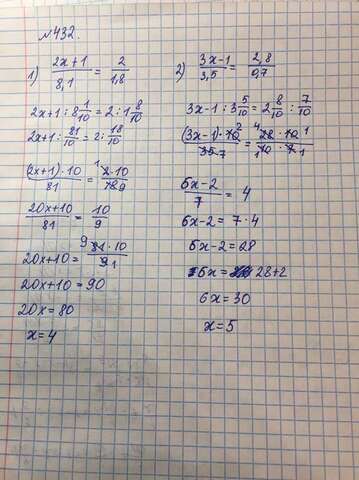 №432.
1) (2x+1)/8,1 = 2/1,8
2x+1 : 8 1/10 = 2 : 1 8/10
2x+1 : 81/10 = 2 : 18/10
((2x+1)·10)/81 = (2·10)/(18 9)
(20x+10)/81 = 10/9
20x+10 = (9 81·10)/(9 1)
20x+10 = 90
20x = 80
x = 4
2) (3x-1)/3,5 = 2,8/0,7
3x-1 : 3 5/10 = 2 8/10 : 7/10
((3x-1)·10 2)/(35 7) = (4 28·10 1)/(1 10·7 1)
(6x-2)/7 = 4
6x-2 = 7·4
6x-2 = 28
6x = 28+2
6x = 30
x = 5